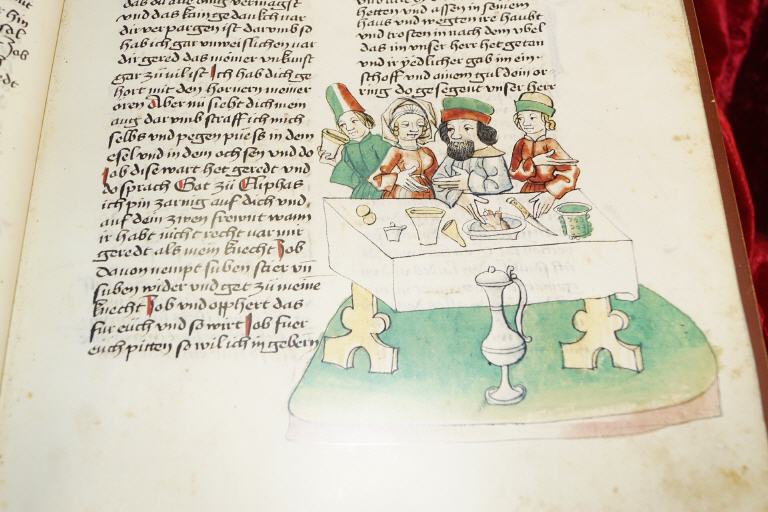 das du alle ding vermagst
vnd das kain gedanckh var
dir verporgen ist darumb so
hab ich gar vnweislichen var
dir gered das meiner vnkunst
gar zu vil ist Ich hab dich ge
hort mit den hornern meiner
oren Aber nu siebt dich mein
aug darumb straff ich mich
selbs vnd pegen pueß in dem
esel vnd in dem ochsen vnd do
Job dise wart het geredt vnd
do sprach Got zu Eliphas
ich pin zornig auf dich vnd
auf dein zwen frewnt wann
ir habt nicht recht var mir
geredt als mein knecht Job
Dauon nempt suben stier vn
suben wider vnd get zu meine
knecht Job vnd opphert das
fur euch vnd so wirt Job fuer
euch pitten so wil ich im gebern
hetten vnd assen in seinem
haus vnd wegten ire haubt
vnd trosten in nach dem vbel
das in vnser herr het getan
vnd ir yedlicher gab im ein
schoff vnd ainem guldein or
ring do gesegent vnser herr